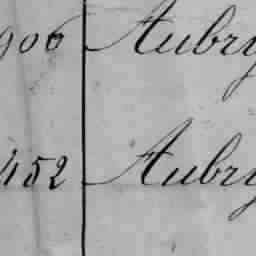 906 Aubry
452 Aubry